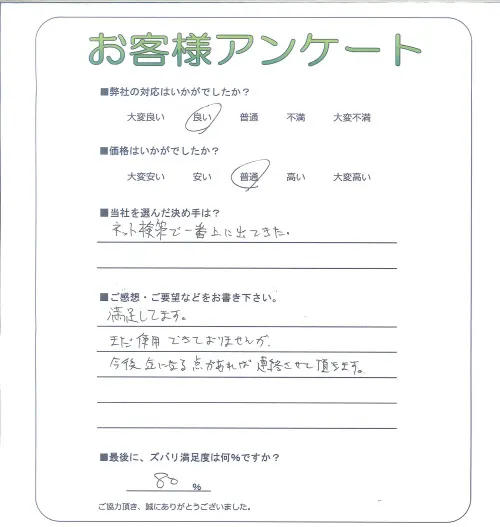 お客様アンケート
■弊社の対応はいかがでしたか？
大変良い 良い 普通 不満 大変不満
■価格はいかがでしたか？
大変安い 安い 普通 高い 大変高い
■当社を選んだ決め手は？
ネット検索で一番上に出てきた。
■ご感想・ご要望などをお書き下さい。
満足してます。
まだ使用できておりませんが、
今後 気になる点があれば 連絡させて頂きます。
■最後に、ズバリ満足度は何％ですか？
80 ％
ご協力頂き、誠にありがとうございました。